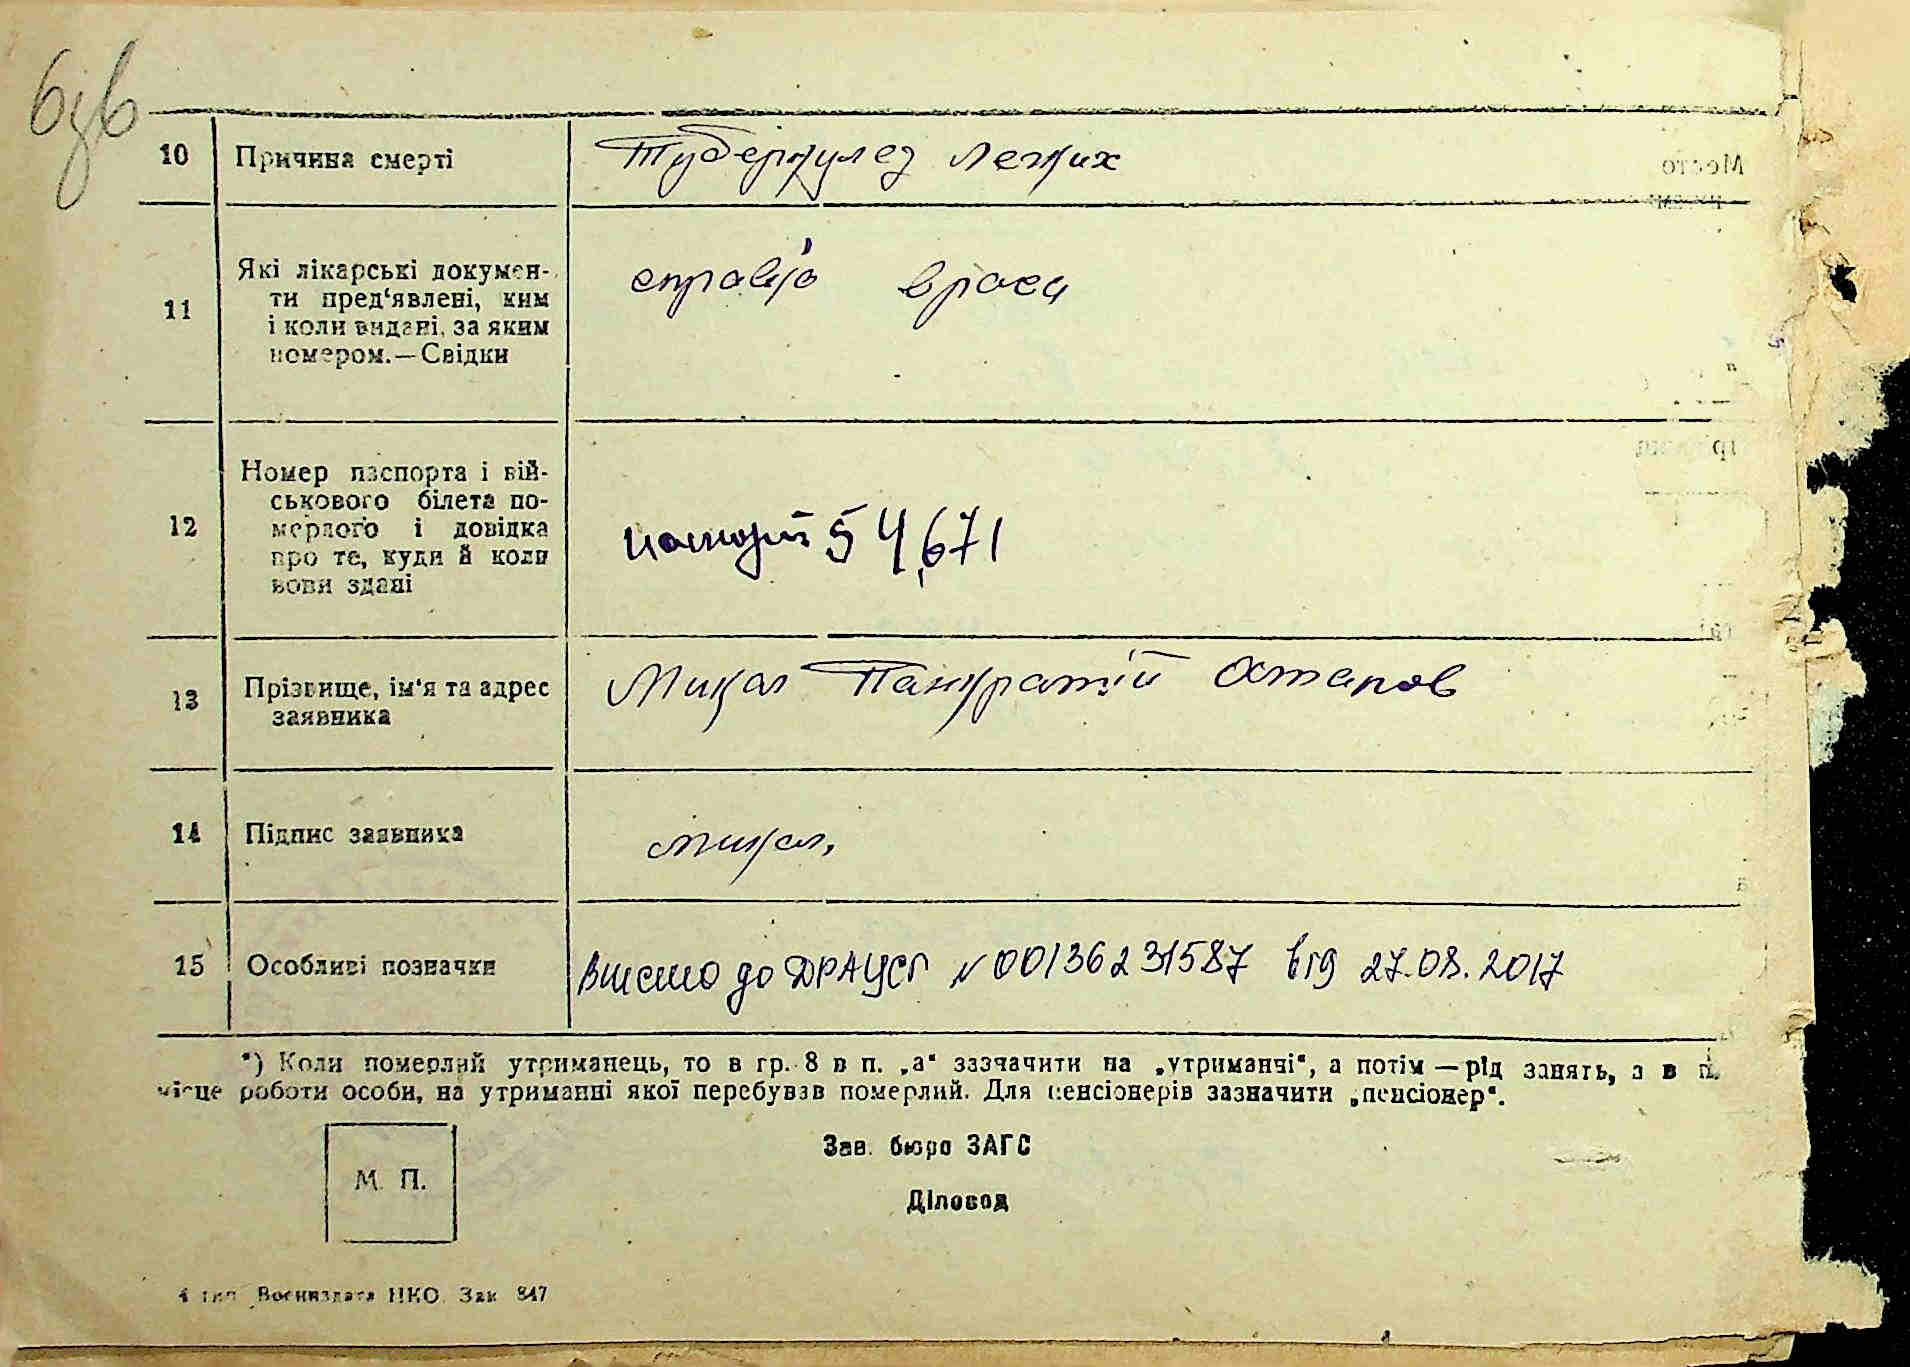 10 Причина смерті Туберкулез легких
11 Які лікарські докумен-
ти пред‘явлені, ким
і коли видані, за яким
номером.—Свідки
справка врача
12 Номер паспорта і вій-
ськового білета по-
мерлого і довідка
про те, куди й коли
вони здані
паспорт 54,671
13 Прізвище, ім‘я та адрес
заявника
Микал Панкратій Остапов
14 Підпис заявника Микал,
15 Особливі позначки Внесено до ДРАЦСГ №00136231587 від 27.08.2017
*) Коли померлий утриманець, то в гр. 8 в п. „а“ зазначити на „утриманні“, а потім — рід занять, а в п.
місце роботи особи, на утриманні якої перебував померлий. Для пенсіонерів зазначити „пенсіонер“.
Зав. бюро ЗАГС
М. П.
Діловод
4 тип. Воениздата НКО. Зак. 847